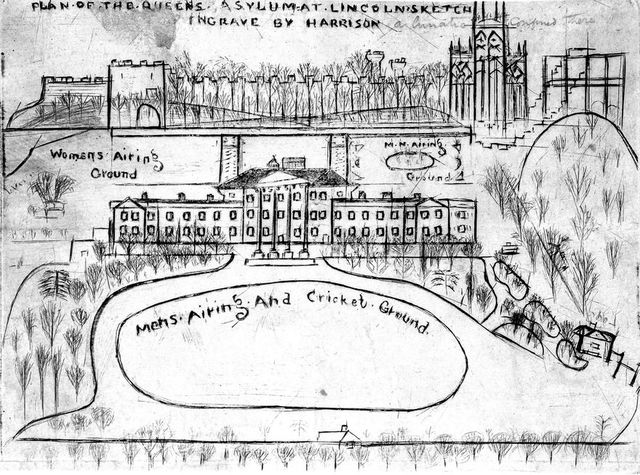 PLAN·OF·THE·QUEENS·ASYLUM·AT·LINCOLN·SKETCH
ENGRAVE BY HARRISON a lunatic Confined there
Womens Airing
Ground
M.N. Airing
Ground
Mens·Airing·And Cricket·Ground.